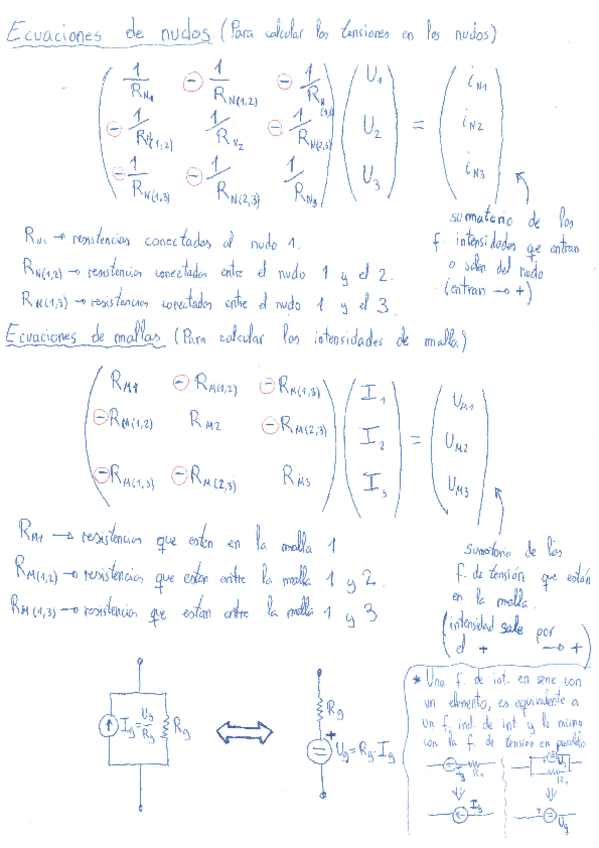 Ecuaciones de nudos (Para calcular las tensiones en los nudos)
1/R_N1 - 1/R_N(1,2) - 1/R_N(1,3) U1 i_N1
- 1/R_N(1,2) 1/R_N2 - 1/R_N(2,3) U2 = i_N2
- 1/R_N(1,3) - 1/R_N(2,3) 1/R_N3 U3 i_N3
sumatorio de las
f. intensidades que entran
o salen del nudo
(entran → +)
R_N1 → resistencias conectadas al nudo 1.
R_N(1,2) → resistencias conectadas entre el nudo 1 y el 2.
R_N(1,3) → resistencias conectadas entre el nudo 1 y el 3.
Ecuaciones de mallas (Para calcular las intensidades de malla)
R_M1 - R_M(1,2) - R_M(1,3) I1 U_M1
- R_M(1,2) R_M2 - R_M(2,3) I2 = U_M2
- R_M(1,3) - R_M(2,3) R_M3 I3 U_M3
R_M1 → resistencias que estan en la malla 1
R_M(1,2) → resistencias que estan entre la malla 1 y 2.
R_M(1,3) → resistencias que estan entre la malla 1 y 3
sumatorio de las
f. de tensión que están
en la malla.
(intensidad sale por
el + → +)
Ig = Ug/Rg Rg
Rg
+
Ug = Rg · Ig
* Una f. de int. en serie con
un elemento, es equivalente a
un f. ind. de int y lo mismo
con la f. de tensión en paralelo
Ig
+
Ug